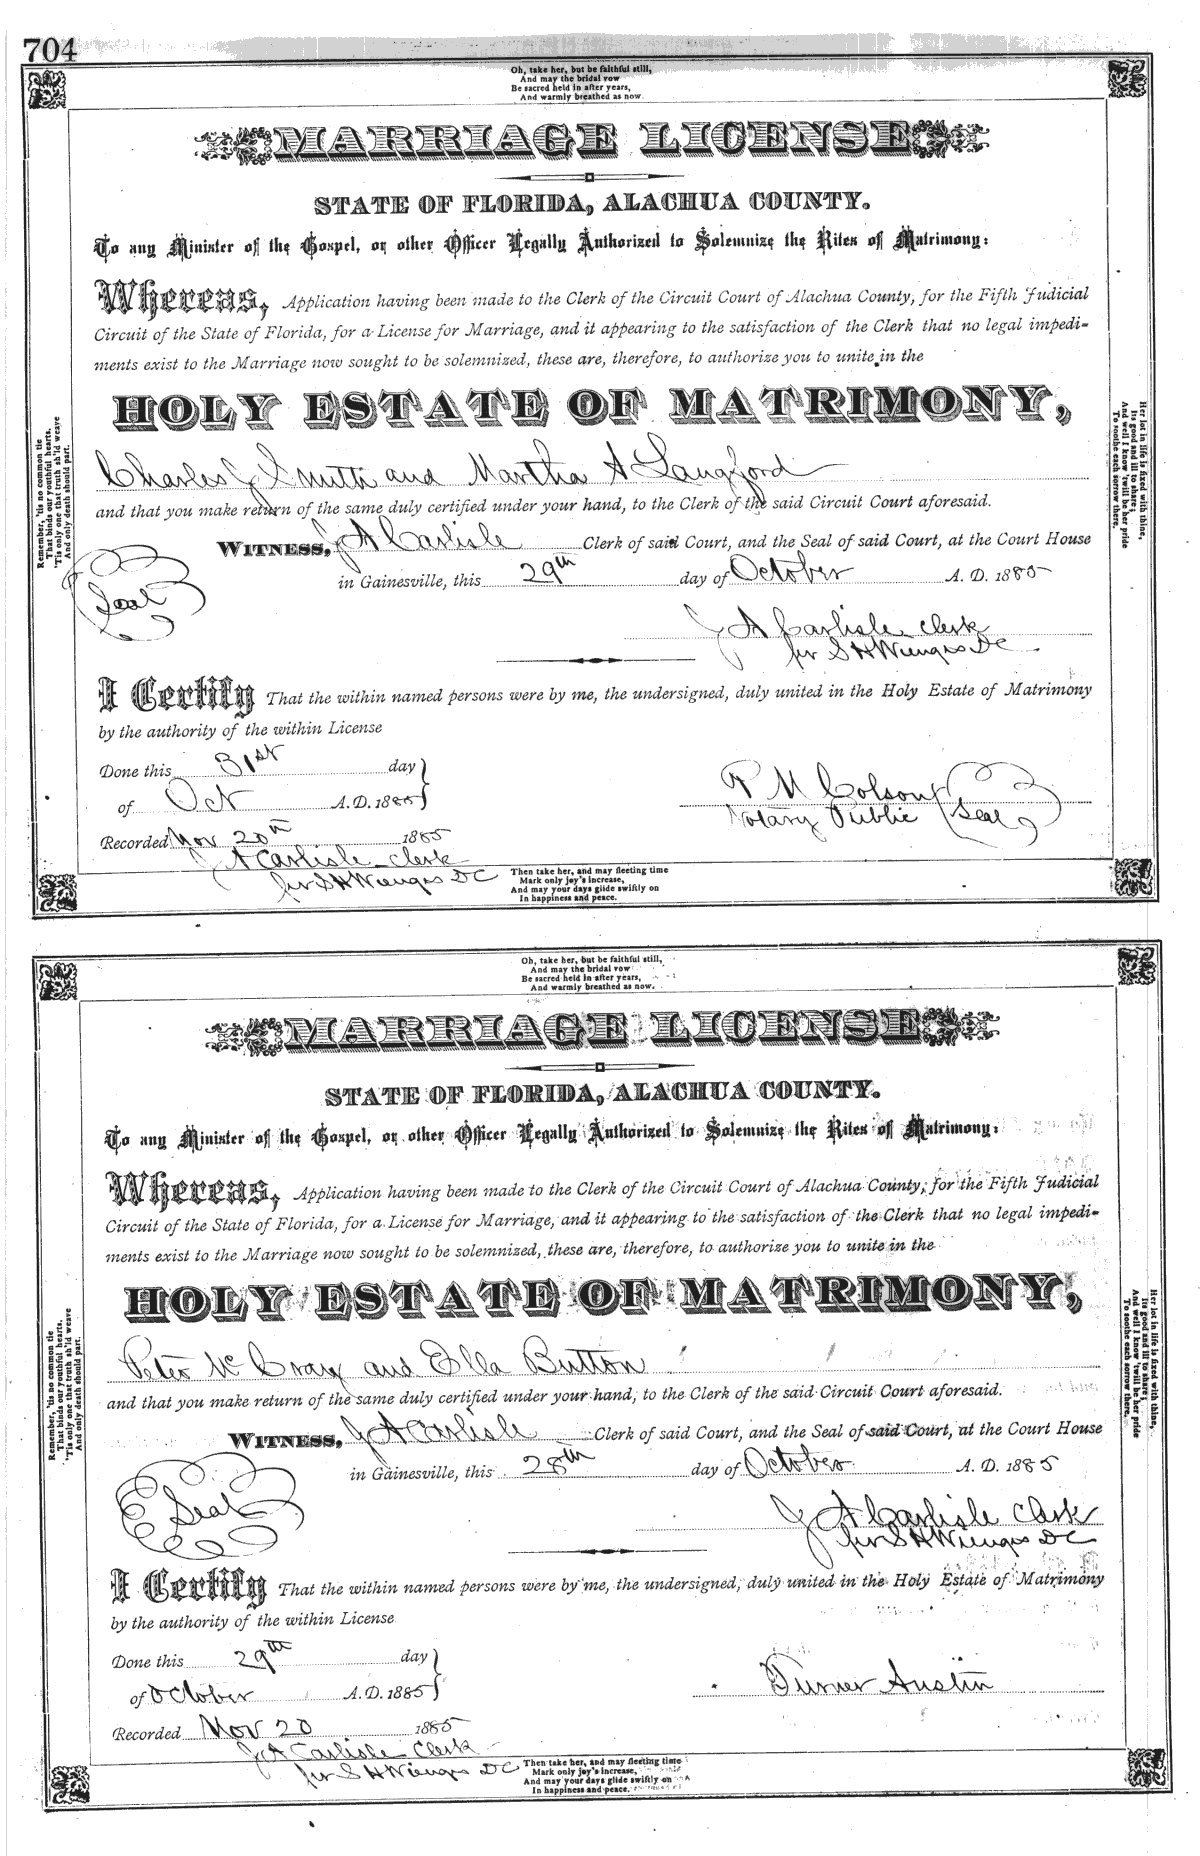 704
Oh, take her, but be faithful still,
And may the bridal vow
Be sacred held in after years,
And warmly breathed as now.
MARRIAGE LICENSE
STATE OF FLORIDA, ALACHUA COUNTY.
To any Minister of the Gospel, or other Officer Legally Authorized to Solemnize the Rites of Matrimony:
Whereas, Application having been made to the Clerk of the Circuit Court of Alachua County, for the Fifth Judicial
Circuit of the State of Florida, for a License for Marriage, and it appearing to the satisfaction of the Clerk that no legal impedi-
ments exist to the Marriage now sought to be solemnized, these are, therefore, to authorize you to unite in the
HOLY ESTATE OF MATRIMONY,
Charles J Smith and Martha A Langford
and that you make return of the same duly certified under your hand, to the Clerk of the said Circuit Court aforesaid.
WITNESS, J A Carlisle Clerk of said Court, and the Seal of said Court, at the Court House
in Gainesville, this 29th day of October A. D. 1885
Seal
J A Carlisle Clerk
per S H Wienges DC
I Certify That the within named persons were by me, the undersigned, duly united in the Holy Estate of Matrimony
by the authority of the within License
Done this 31st day
of Oct A.D. 1885
P M Colson
Notary Public Seal
Recorded Nov 20th 1885
J A Carlisle Clerk
per S H Wienges DC
Then take her, and may fleeting time
Mark only joy's increase,
And may your days glide swiftly on
In happiness and peace.
Remember, 'tis no common tie
That binds our youthful hearts.
'Tis only one that truth sh'ld weave
And only death should part.
Her lot in life is fixed with thine,
Its good and ill to share;
And well I know 'twill be her pride
To soothe each sorrow there.
Oh, take her, but be faithful still,
And may the bridal vow
Be sacred held in after years,
And warmly breathed as now.
MARRIAGE LICENSE
STATE OF FLORIDA, ALACHUA COUNTY.
To any Minister of the Gospel, or other Officer Legally Authorized to Solemnize the Rites of Matrimony:
Whereas, Application having been made to the Clerk of the Circuit Court of Alachua County, for the Fifth Judicial
Circuit of the State of Florida, for a License for Marriage, and it appearing to the satisfaction of the Clerk that no legal impedi-
ments exist to the Marriage now sought to be solemnized, these are, therefore, to authorize you to unite in the
HOLY ESTATE OF MATRIMONY,
Peter McCray and Ella Button
and that you make return of the same duly certified under your hand, to the Clerk of the said Circuit Court aforesaid.
WITNESS, J A Carlisle Clerk of said Court, and the Seal of said Court, at the Court House
in Gainesville, this 28th day of October A. D. 1885
Seal
J A Carlisle Clerk
per S H Wienges DC
I Certify That the within named persons were by me, the undersigned, duly united in the Holy Estate of Matrimony
by the authority of the within License
Done this 29th day
of October A.D. 1885
Turner Austin
Recorded Nov 20 1885
J A Carlisle Clerk
per S H Wienges DC
Then take her, and may fleeting time
Mark only joy's increase,
And may your days glide swiftly on
In happiness and peace.
Remember, 'tis no common tie
That binds our youthful hearts.
'Tis only one that truth sh'ld weave
And only death should part.
Her lot in life is fixed with thine,
Its good and ill to share;
And well I know 'twill be her pride
To soothe each sorrow there.